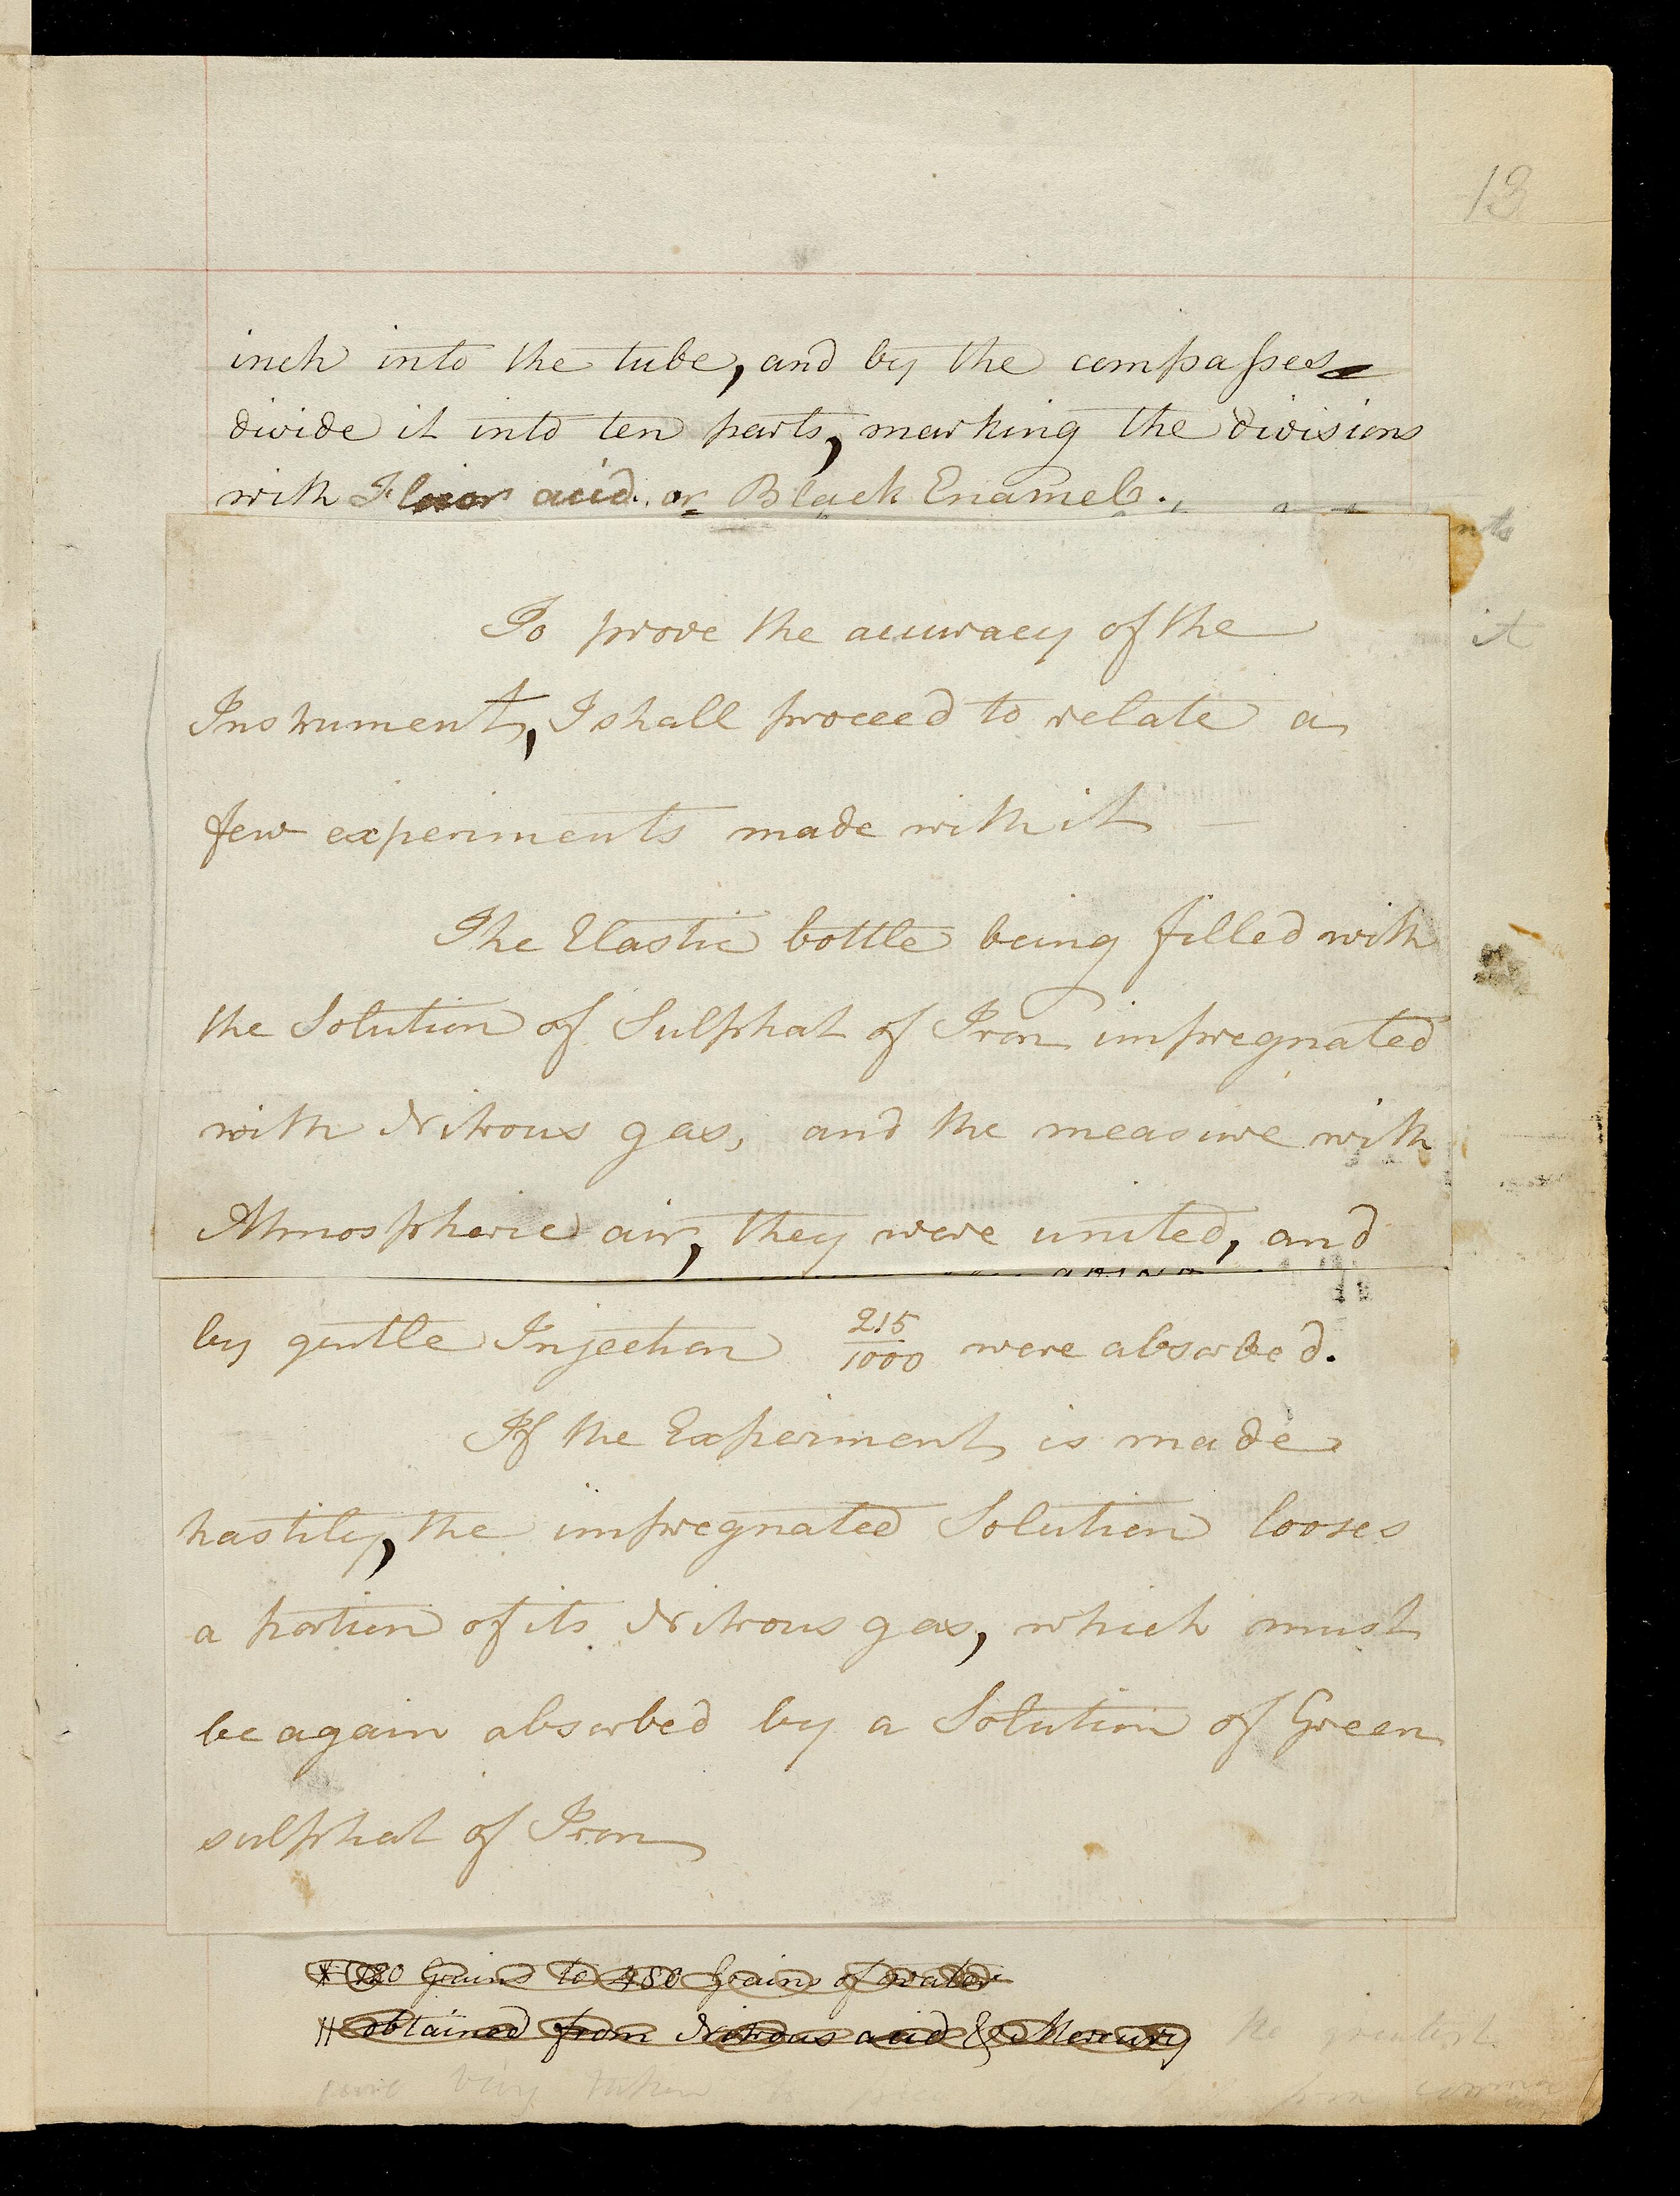 13
inch into the tube, and by the compaſses
divide it into ten parts, marking the divisions
with Fluor acid. or Black Enamel.
nts
To prove the accuracy of the
it
Instrument, I shall proceed to relate a
few experiments made with it —
The Elastic bottle being filled with
the Solution of Sulphat of Iron impregnated
with Nitrous gas, and the measure with
Atmospheric air, they were united, and
by gentle Injection 215/1000 were absorbed.
If the Experiment is made
hastily, the impregnated Solution looses
a portion of its Nitrous gas, which must
be again absorbed by a Solution of Green
sulphat of Iron
Grains to 480 Grains of water
obtained from Nitrous acid & Mercury the greatest
care being taken to from common